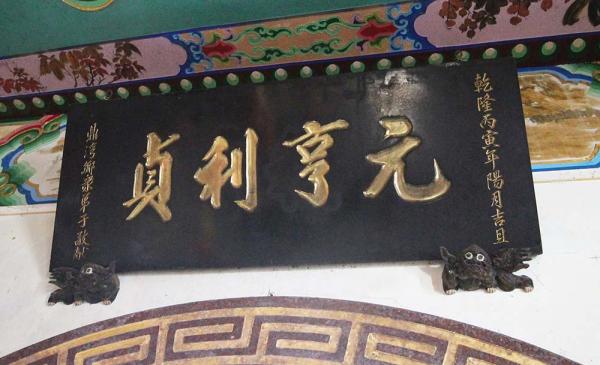 乾隆丙寅年陽月吉旦
元亨利貞
鼎灣鄉眾弟子敬獻